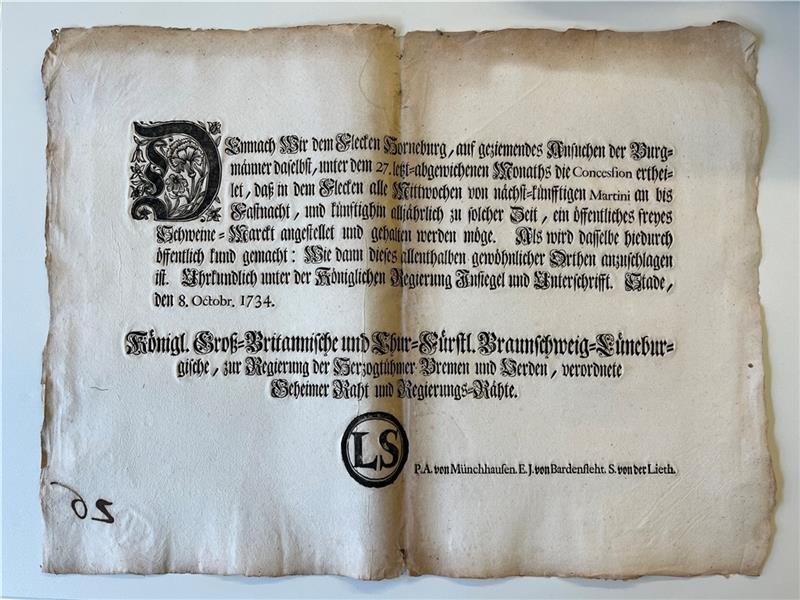 DEmnach Wir dem Flecken Horneburg, auf geziemendes Ansuchen der Burg-
männer daselbst, unter dem 27. letzt-abgewichenen Monaths die Concession erthei-
let, daß in dem Flecken alle Mittwochen von nächst-künfftigen Martini an bis
Fastnacht, und künftighin alljährlich zu solcher Zeit, ein öffentliches freyes
Schweine-Marckt angestellet und gehalten werden möge. Als wird dasselbe hiedurch
öffentlich kund gemacht: Wie dann dieses allenthalben gewöhnlicher Orthen anzuschlagen
ist. Uhrkundlich unter der Königlichen Regierung Insiegel und Unterschrifft. Stade,
den 8. Octobr. 1734.
Königl. Groß-Britannische und Chur-Fürstl. Braunschweig-Lünebur-
gische, zur Regierung der Herzogtühmer Bremen und Verden, verordnete
Geheimer Raht und Regierungs-Rähte.
LS
P. A. von Münchhausen. E. J. von Bardenfleht. S. von der Lieth.
26